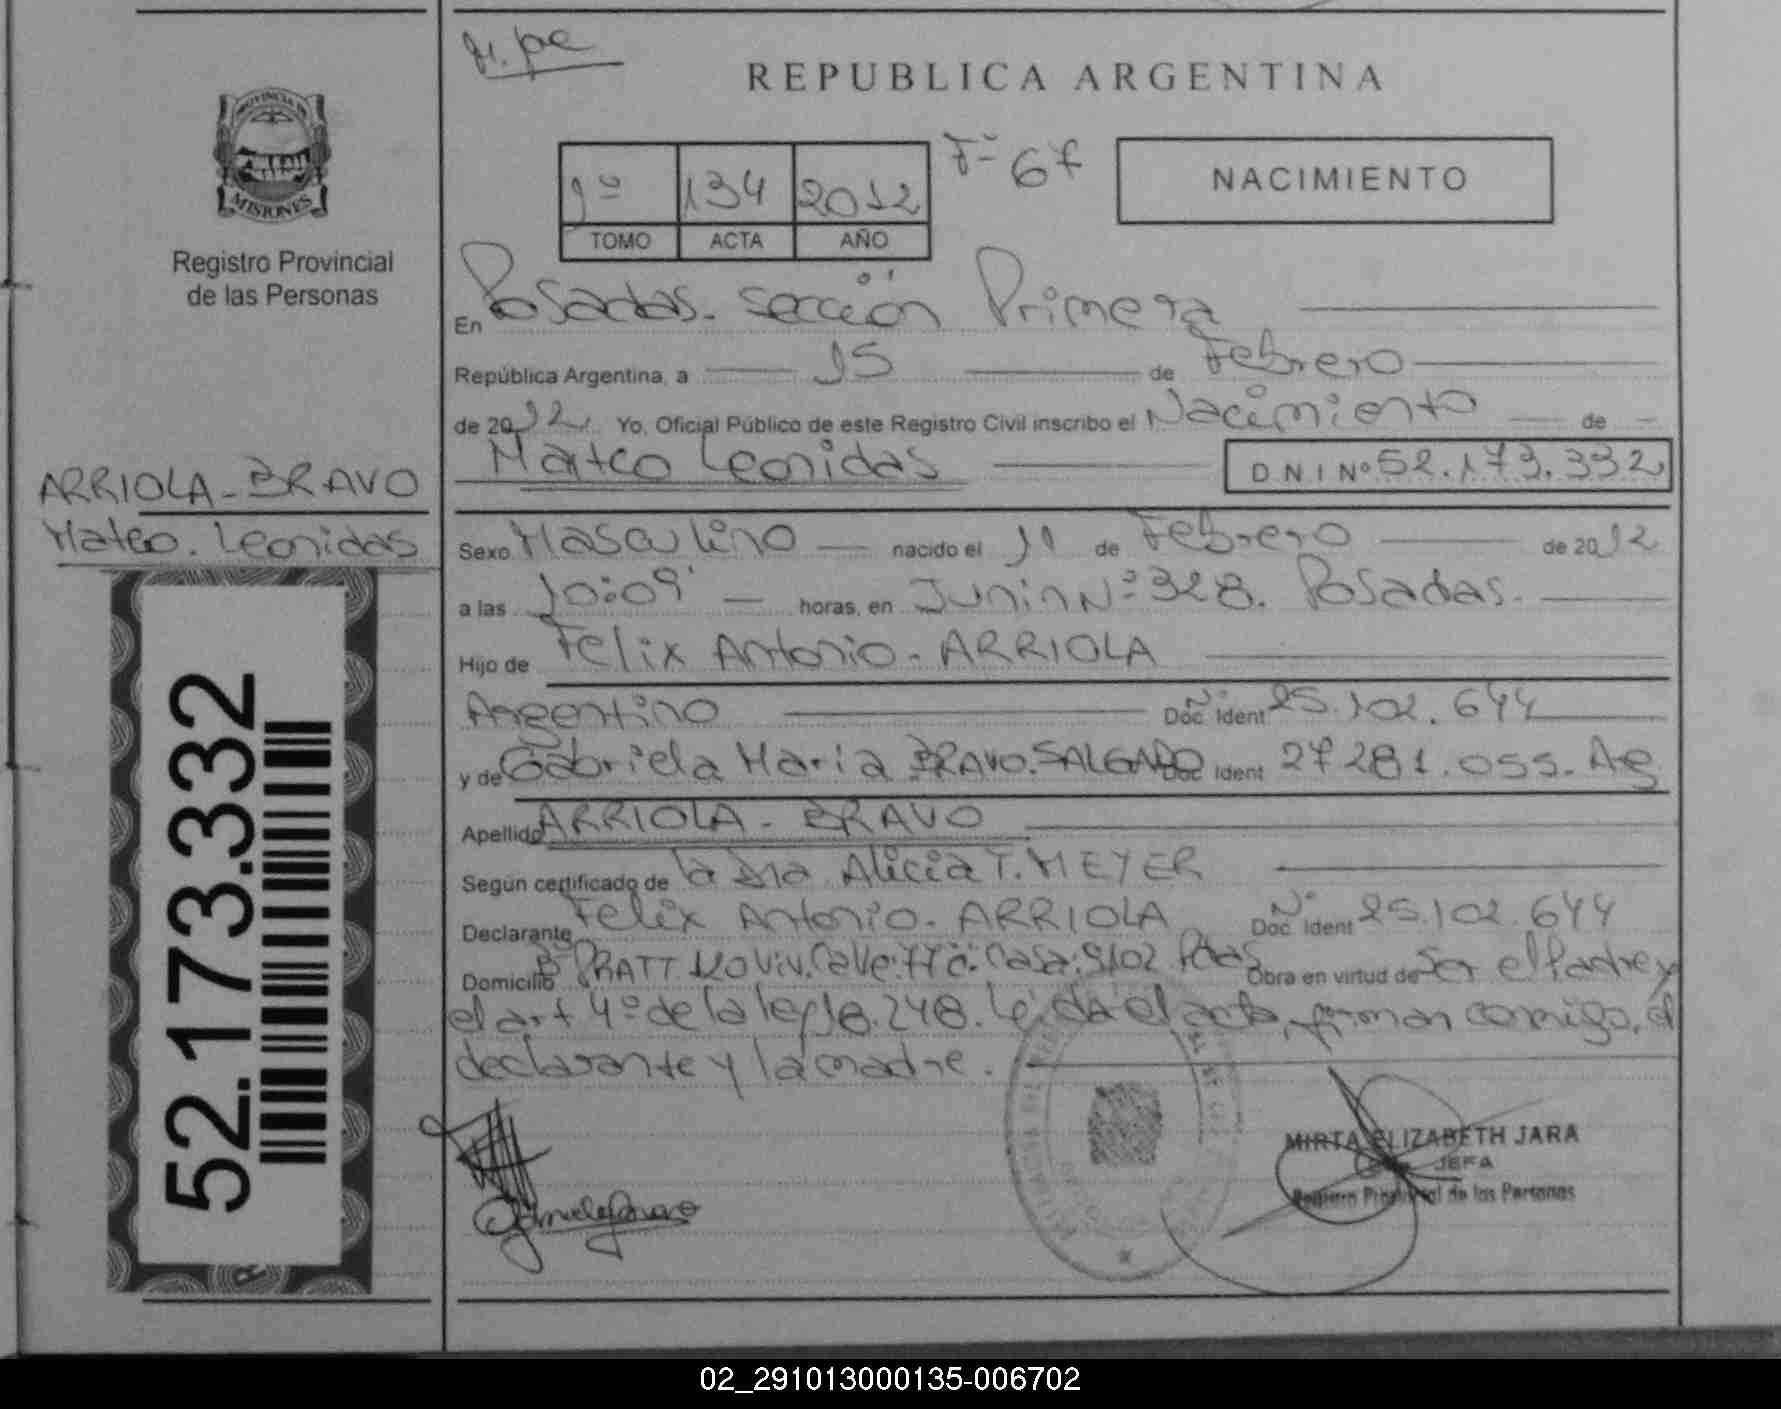 M. pe
REPUBLICA ARGENTINA
Fº 67
NACIMIENTO
1º 134 2012
TOMO ACTA AÑO
PROVINCIA DE
MISIONES
Registro Provincial
de las Personas
En Posadas. Sección Primera
República Argentina, a 15 de Febrero
de 2012. Yo, Oficial Público de este Registro Civil inscribo el Nacimiento de
Mateo Leonidas D N I Nº 52.173.332
ARRIOLA - BRAVO
Mateo. Leonidas
Sexo Masculino nacido el 11 de Febrero de 2012
a las 10:09' horas, en Junin Nº 328. Posadas.
Hijo de Felix Antonio - ARRIOLA
Argentino Doc. Ident Nº 25.102.644
y de Gabriela Maria BRAVO. SALGADO Doc Ident 27 281.055. Ag
Apellido ARRIOLA - BRAVO
Según certificado de la Dra Alicia T. MEYER
Declarante Felix Antonio. ARRIOLA Doc. Ident Nº 25.102.644
Domicilio Bº PRATT 120 Viv. Calle: 77 C: Casa: 9102 Pdas Obra en virtud de Ser el Padre y
el art 4º de la ley 18.248. Leida el acta, firman conmigo, el
declarante y la madre.
52.173.332
MIRTA ELIZABETH JARA
JEFA
Registro Provincial de las Personas
02_291013000135-006702